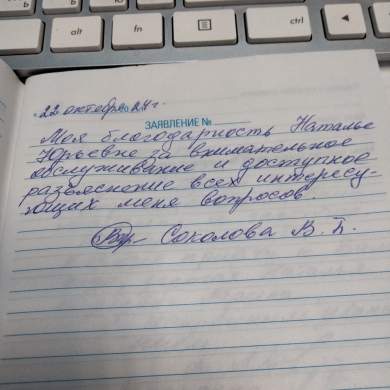 alt
fn
ctrl
22 октября 24 г.
ЗАЯВЛЕНИЕ №
Моя благодарность Наталье
Юрьевне за внимательное
обслуживание и доступное
разъяснение всех интересу-
ющих меня вопросов.
Соколова В. П.